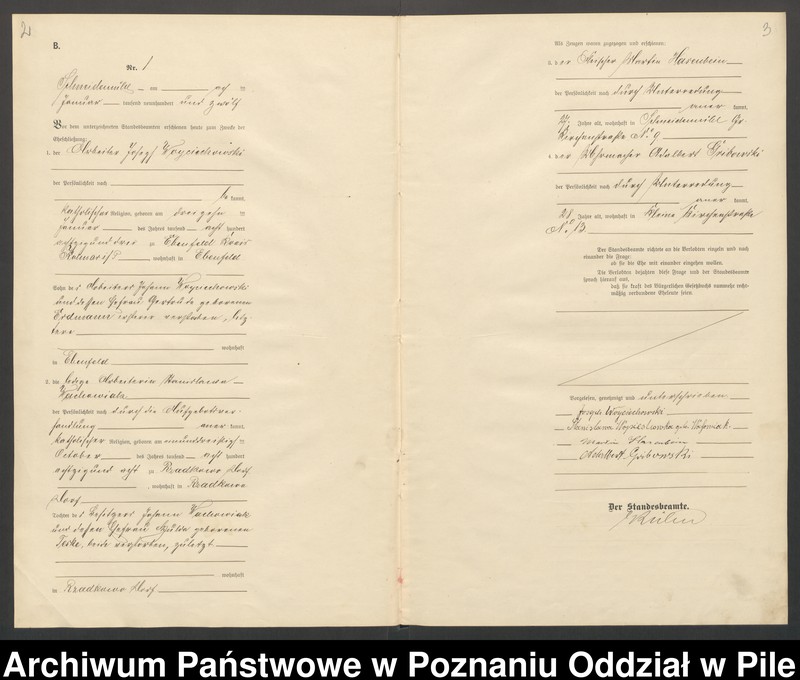 2
B.
Nr. 1
Schneidemühl am acht ten
Januar tausend neunhundert und zwölf
Vor dem unterzeichneten Standesbeamten erschienen heute zum Zwecke der
Eheschließung:
1. der Arbeiter Josef Woyciechowski
der Persönlichkeit nach
kannt,
katholischer Religion, geboren am dreizehn ten
Januar des Jahres tausend acht hundert
achtzigunddrei zu Ebenfeld Kreis
Kolmar i/P. wohnhaft in Ebenfeld
Sohn des Arbeiters Johann Woyciechowski
und dessen Ehefrau Gertrude geborenen
Erdmann, ersterer verstorben, letz-
tere
wohnhaft
in Ebenfeld
2. die ledige Arbeiterin Stanislawa
der Persönlichkeit nach durch die Aufgebotsver-
handlung aner kannt,
katholischer Religion, geboren am einunddreißig ten
October des Jahres tausend acht hundert
achtzigundacht zu Rzadkowo Dorf
, wohnhaft in Rzadkowo
Dorf
Tochter des Besitzers Johann
und dessen Ehefrau Hulda geborenen
Teske, beide verstorben, zuletzt
wohnhaft
in Rzadkowo Dorf
3
Als Zeugen waren zugezogen und erschienen:
3. der Fleischer Martin Hasenbein
der Persönlichkeit nach durch Unterredung
aner kannt,
Jahre alt, wohnhaft in Schneidemühl Gr.
Kirchenstraße No 9
4. der Uhrmacher Adalbert Gribowski
der Persönlichkeit nach durch Unterredung
aner kannt,
28 Jahre alt, wohnhaft in Kleine Kirchenstraße
No 13.
Der Standesbeamte richtete an die Verlobten einzeln und nach
einander die Frage:
ob sie die Ehe mit einander eingehen wollen.
Die Verlobten bejahten diese Frage und der Standesbeamte
sprach hierauf aus,
daß sie kraft des Bürgerlichen Gesetzbuchs nunmehr recht-
mäßig verbundene Eheleute seien.
Vorgelesen, genehmigt und unterschrieben
Joseph Woyciechowski
Stanislawa Woyciechowska geb.
Martin Hasenbein
Adalbert Gribowski
Der Standesbeamte.
Archiwum Państwowe w Poznaniu Oddział w Pile